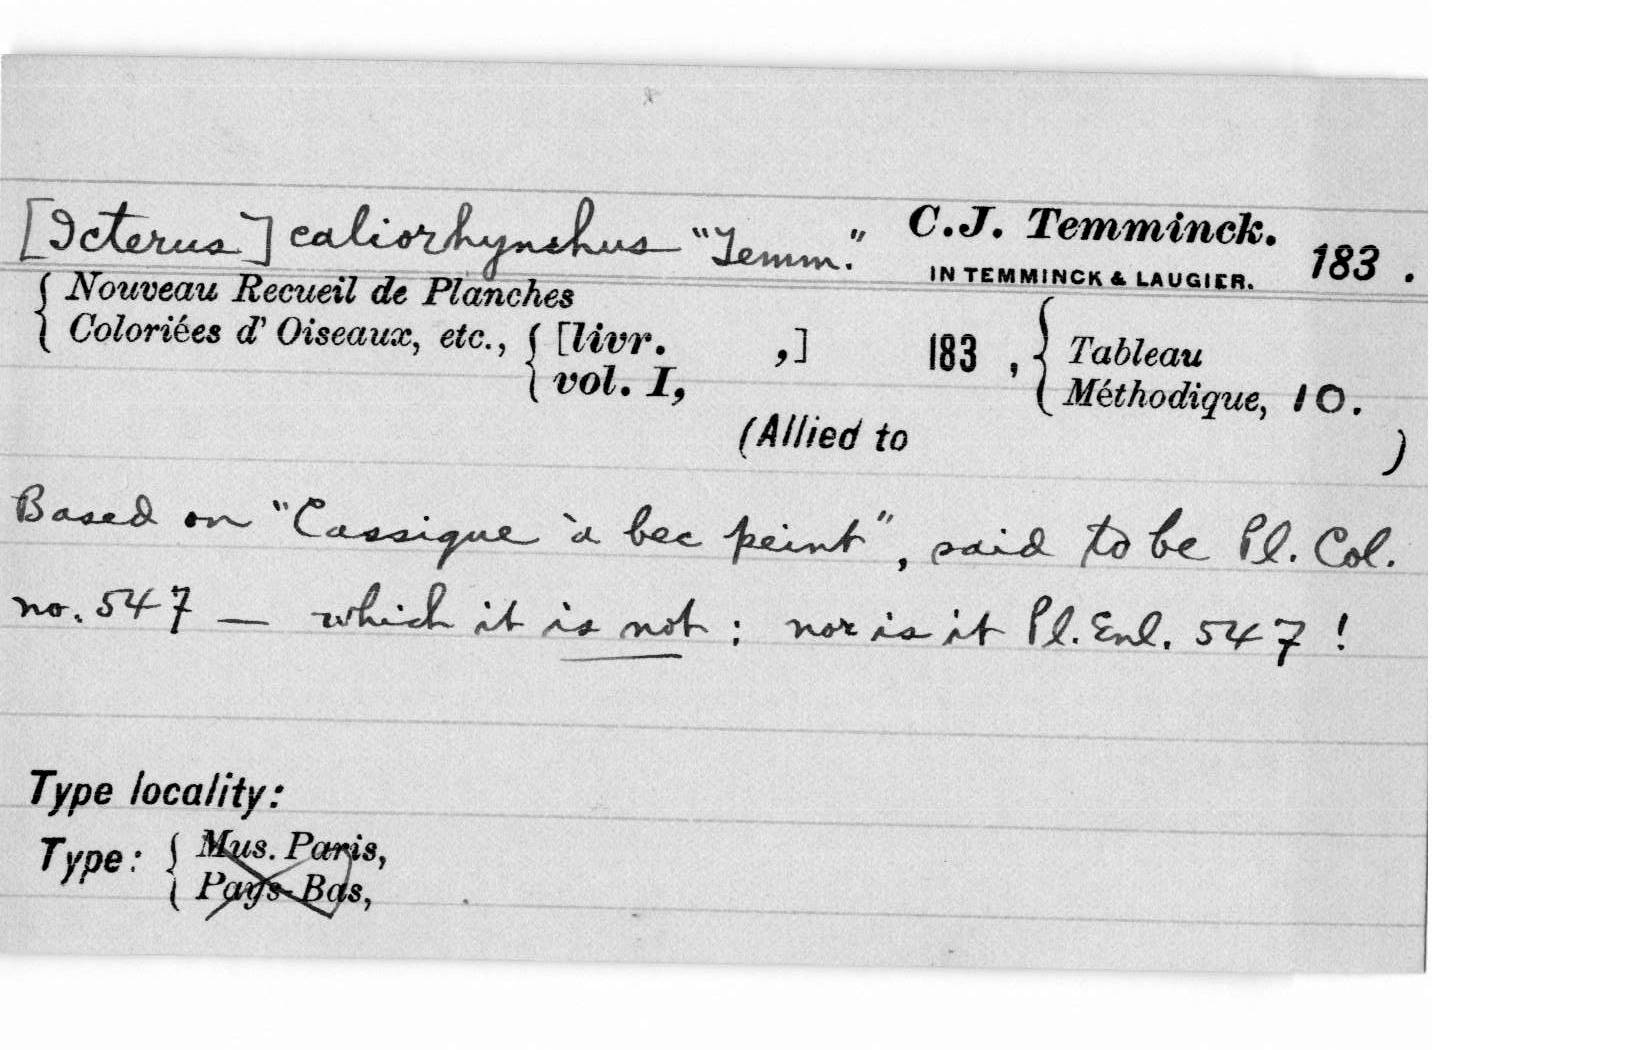 [Icterus] caliorhynchus "Temm." C.J. Temminck.
IN TEMMINCK & LAUGIER. 183 .
{ Nouveau Recueil de Planches
Coloriées d' Oiseaux, etc., { [livr. ,] 183 , { Tableau
vol. I, Méthodique, 10.
(Allied to )
Based on "Cassique à bec peint", said to be Pl. Col.
no. 547 — which it is not : nor is it Pl. Enl. 547 !
Type locality:
Type: { Mus. Paris,
Pays-Bas,